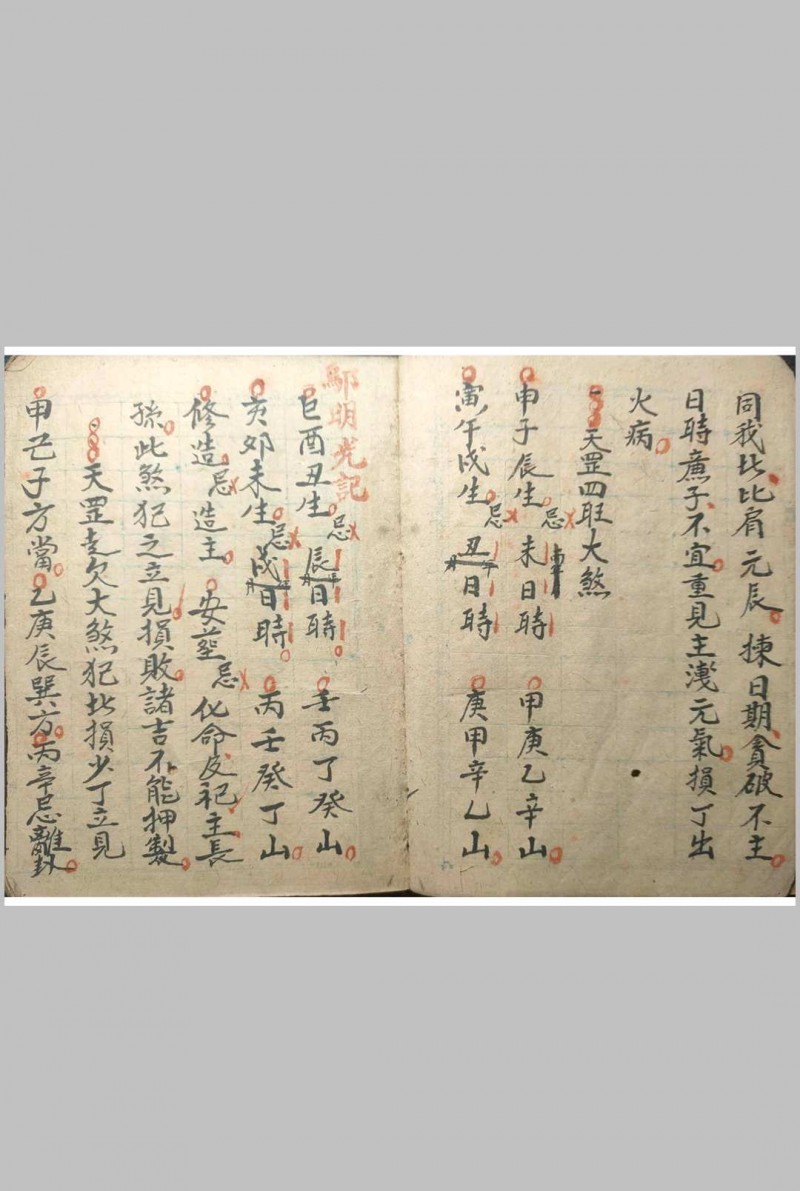 同我比比肩元辰揀日期貪破不主
日時薦子不宜重見主洩元氣損丁出
火病
一天罡四旺大煞
申子辰生忌未日時 甲庚乙辛山
寅午戌生忌丑日時 庚甲辛乙山
鄢明光記
巳酉丑生忌辰日時 壬丙丁癸山
亥卯未生忌戌日時 丙壬癸丁山
修造忌造主 安塟忌化命及祀主長
孫此煞犯之立見損敗諸吉不能押製
天罡走欠大煞犯此損少丁立見
甲己子方當乙庚辰巽方丙辛忌離卦